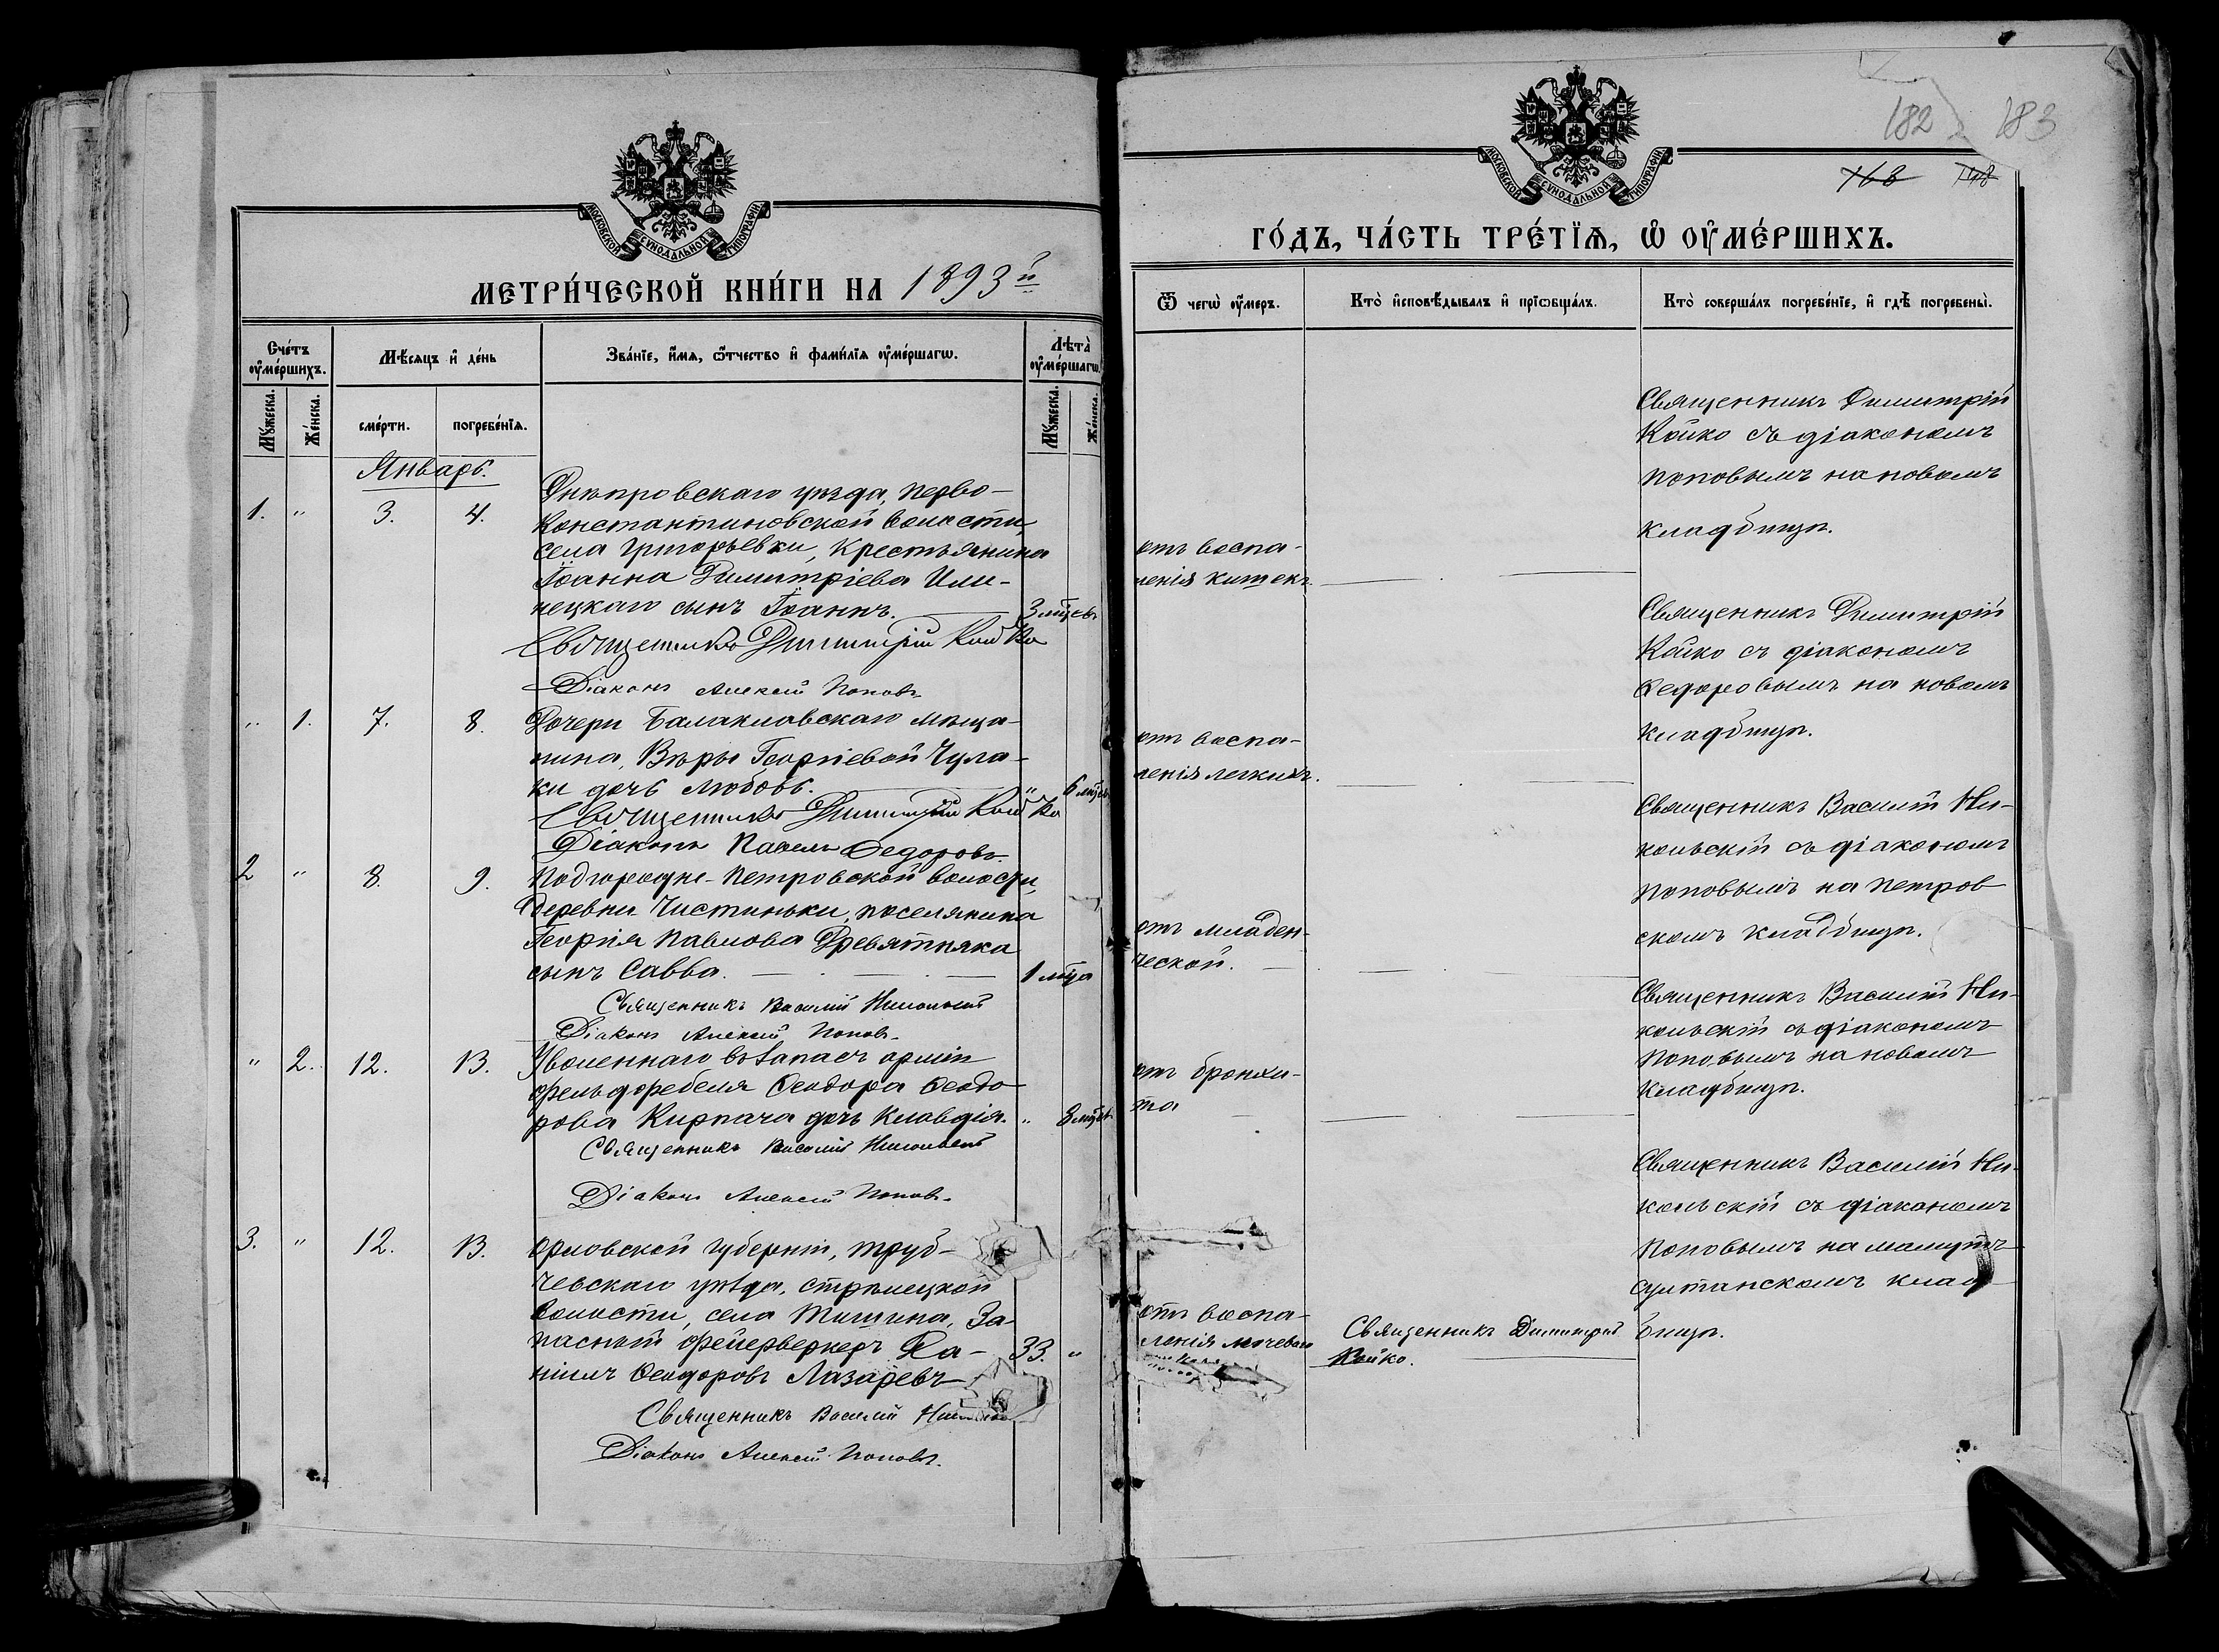 МОСКОВСКОЙ СѴНОДАЛЬНОЙ ТИПОГРАФІИ
МЕТРИ́ЧЕСКОЙ КНИ́ГИ НА 1893й
Сче́тъ ᲂу҆ме́ршихъ.
Мѣ́сяцъ и҆ де́нь
Зва́нїе, и҆́мя, ѻ҆́тчество и҆ фами́лїя ᲂу҆ме́ршагѡ.
Лѣта̀ ᲂу҆ме́ршагѡ.
Мꙋ́жеска.
Же́нска.
сме́рти.
погребе́нїя.
Мꙋ́жеска.
Же́нска.
Январь.
1. " 3. 4.
Днѣпровскаго уѣзда, Перво-
Константиновской волости,
села Григорьевки, крестьянина
Іоанна Димитріева Или-
нецкаго сынъ Іоаннъ. 3 мѣсь
Священникъ Димитрій Койко
Діаконъ Алексѣй Поповъ
" 1. 7. 8.
Дочери Балаклавскаго мѣща-
нина, Вѣры Георгіевой Чула-
ки дочь Любовь. " 6 мѣсь
Священникъ Димитрій Койко
Діаконъ Павелъ Ѳедоровъ
2 " 8. 9.
Подгородне-Петровской волости,
деревни Чистиньки, поселянина
Георгія Павлова Древятняка
сынъ Савва. 1 мѣца
Священникъ Василій Никольскій
Діаконъ Алексѣй Поповъ
" 2. 12. 13.
Уволеннаго въ запасъ арміи
фельдфебеля Ѳеодора Ѳеодо-
рова Кирпача дочь Клавдія. " 8 мѣсь
Священникъ Василій Никольскій
Діаконъ Алексѣй Поповъ
3. " 12. 13.
Орловской губерніи, Труб-
чевскаго уѣзда, Стрѣлецкой
волости, села Тишина, за-
пасный фейерверкеръ Да-
ніилъ Ѳеодоровъ Лазаревъ 33. "
Священникъ Василій
Діаконъ Алексѣй Поповъ.
182 183
168 148
МОСКОВСКОЙ СѴНОДАЛЬНОЙ ТИПОГРАФІИ
ГО́ДЪ, ЧА́СТЬ ТРЕ́ТЇЯ, Ѡ҆ ᲂУ҆МЕ́РШИХЪ.
Ѿ чегѡ̀ ᲂу҆́меръ.
Кто̀ и҆сповѣ́дывалъ и҆ прїѡбща́лъ.
Кто̀ соверша́лъ погребе́нїе, и҆ гдѣ̀ погребены̀.
отъ воспа-
ленія кишекъ
Священникъ Димитрій
Койко съ діакономъ
Поповымъ на новомъ
кладбищѣ.
отъ воспа-
ленія легкихъ.
Священникъ Димитрій
Койко съ діакономъ
Ѳедоровымъ на новомъ
кладбищѣ.
отъ младен-
ческой.
Священникъ Василій Ни-
кольскій съ діакономъ
Поповымъ на Петров
скомъ кладбищѣ.
отъ бронхи-
та
Священникъ Василій Ни-
кольскій съ діакономъ
Поповымъ на новомъ
кладбищѣ.
отъ воспа-
ленія мочевого
Священникъ Димитрій
Койко.
Священникъ Василій Ни-
кольскій съ діакономъ
Поповымъ на мамутъ
султанскомъ клад
бищѣ.